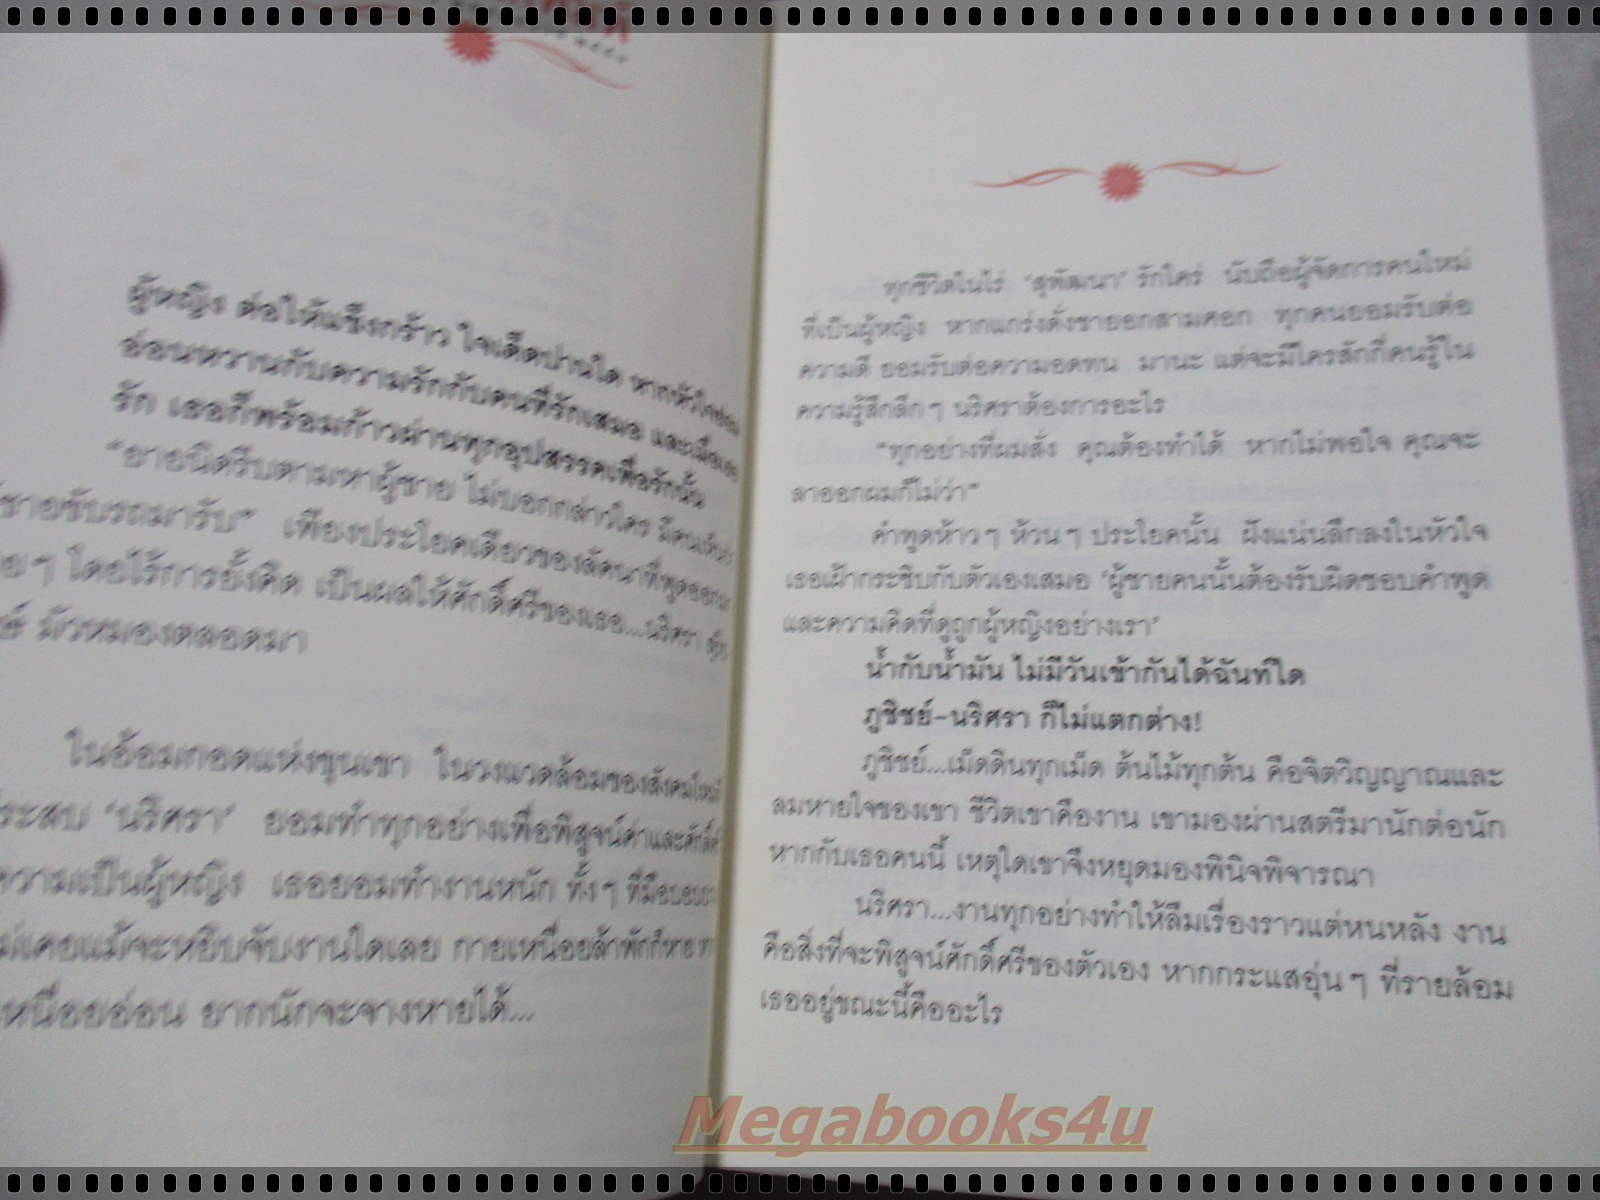 ผู้หญิง ต่อให้แข็งกร้าว ใจเด็ดปานใด หากหัวใจอ่อน
อ่อนหวานกับความรักกับคนที่รักเสมอ และเมื่อเธอ
รัก เธอก็พร้อมก้าวผ่านทุกอุปสรรคเพื่อรักนั้น
“ยายนิดรีบตามหาผู้ชาย ไม่บอกกล่าวใคร มีคนเห็นว่า
ชายขับรถมารับ” เพียงประโยคเดียวของลัคนาที่พูดออกมา
ๆ โดยไร้การยั้งคิด เป็นผลให้ศักดิ์ศรีของเธอ...นริศรา
มัวหมองตลอดมา
ในอ้อมกอดแห่งขุนเขา ในวงแวดล้อมของสังคมใหม่ที่
ประสบ ‘นริศรา’ ยอมทำทุกอย่างเพื่อพิสูจน์ค่าและศักดิ์ศรี
ความเป็นผู้หญิง เธอยอมทำงานหนัก ทั้งๆ ที่มือบอบบาง
ไม่เคยแม้จะหยิบจับงานใดเลย กายเหนื่อยล้าพักก็หาย
เหนื่อยอ่อน ยากนักจะจางหายได้...
ทุกชีวิตในไร่ ‘สุทัฒนา’ รักใคร่ นับถือผู้จัดการคนใหม่
ที่เป็นผู้หญิง หากแกร่งดั่งชายอกสามศอก ทุกคนยอมรับต่อ
ความดี ยอมรับต่อความอดทน มานะ แต่จะมีใครสักกี่คนรู้ใน
ความรู้สึกลึกๆ นริศราต้องการอะไร
“ทุกอย่างที่ผมสั่ง คุณต้องทำได้ หากไม่พอใจ คุณจะ
ลาออกผมก็ไม่ว่า”
คำพูดห้าวๆ ห้วนๆ ประโยคนั้น ฝังแน่นลึกลงในหัวใจ
เธอเฝ้ากระซิบกับตัวเองเสมอ ‘ผู้ชายคนนั้นต้องรับผิดชอบคำพูด
และความคิดที่ดูถูกผู้หญิงอย่างเรา’
น้ำกับน้ำมัน ไม่มีวันเข้ากันได้ฉันท์ใด
ภูชิชย์-นริศรา ก็ไม่แตกต่าง!
ภูชิชย์...เม็ดดินทุกเม็ด ต้นไม้ทุกต้น คือจิตวิญญาณและ
ลมหายใจของเขา ชีวิตเขาคืองาน เขามองผ่านสตรีมานักต่อนัก
หากกับเธอคนนี้ เหตุใดเขาจึงหยุดมองพินิจพิจารณา
นริศรา...งานทุกอย่างทำให้ลืมเรื่องราวแต่หนหลัง งาน
คือสิ่งที่จะพิสูจน์ศักดิ์ศรีของตัวเอง หากกระแสอุ่นๆ ที่รายล้อม
เธออยู่ขณะนี้คืออะไร
Megabooks4u